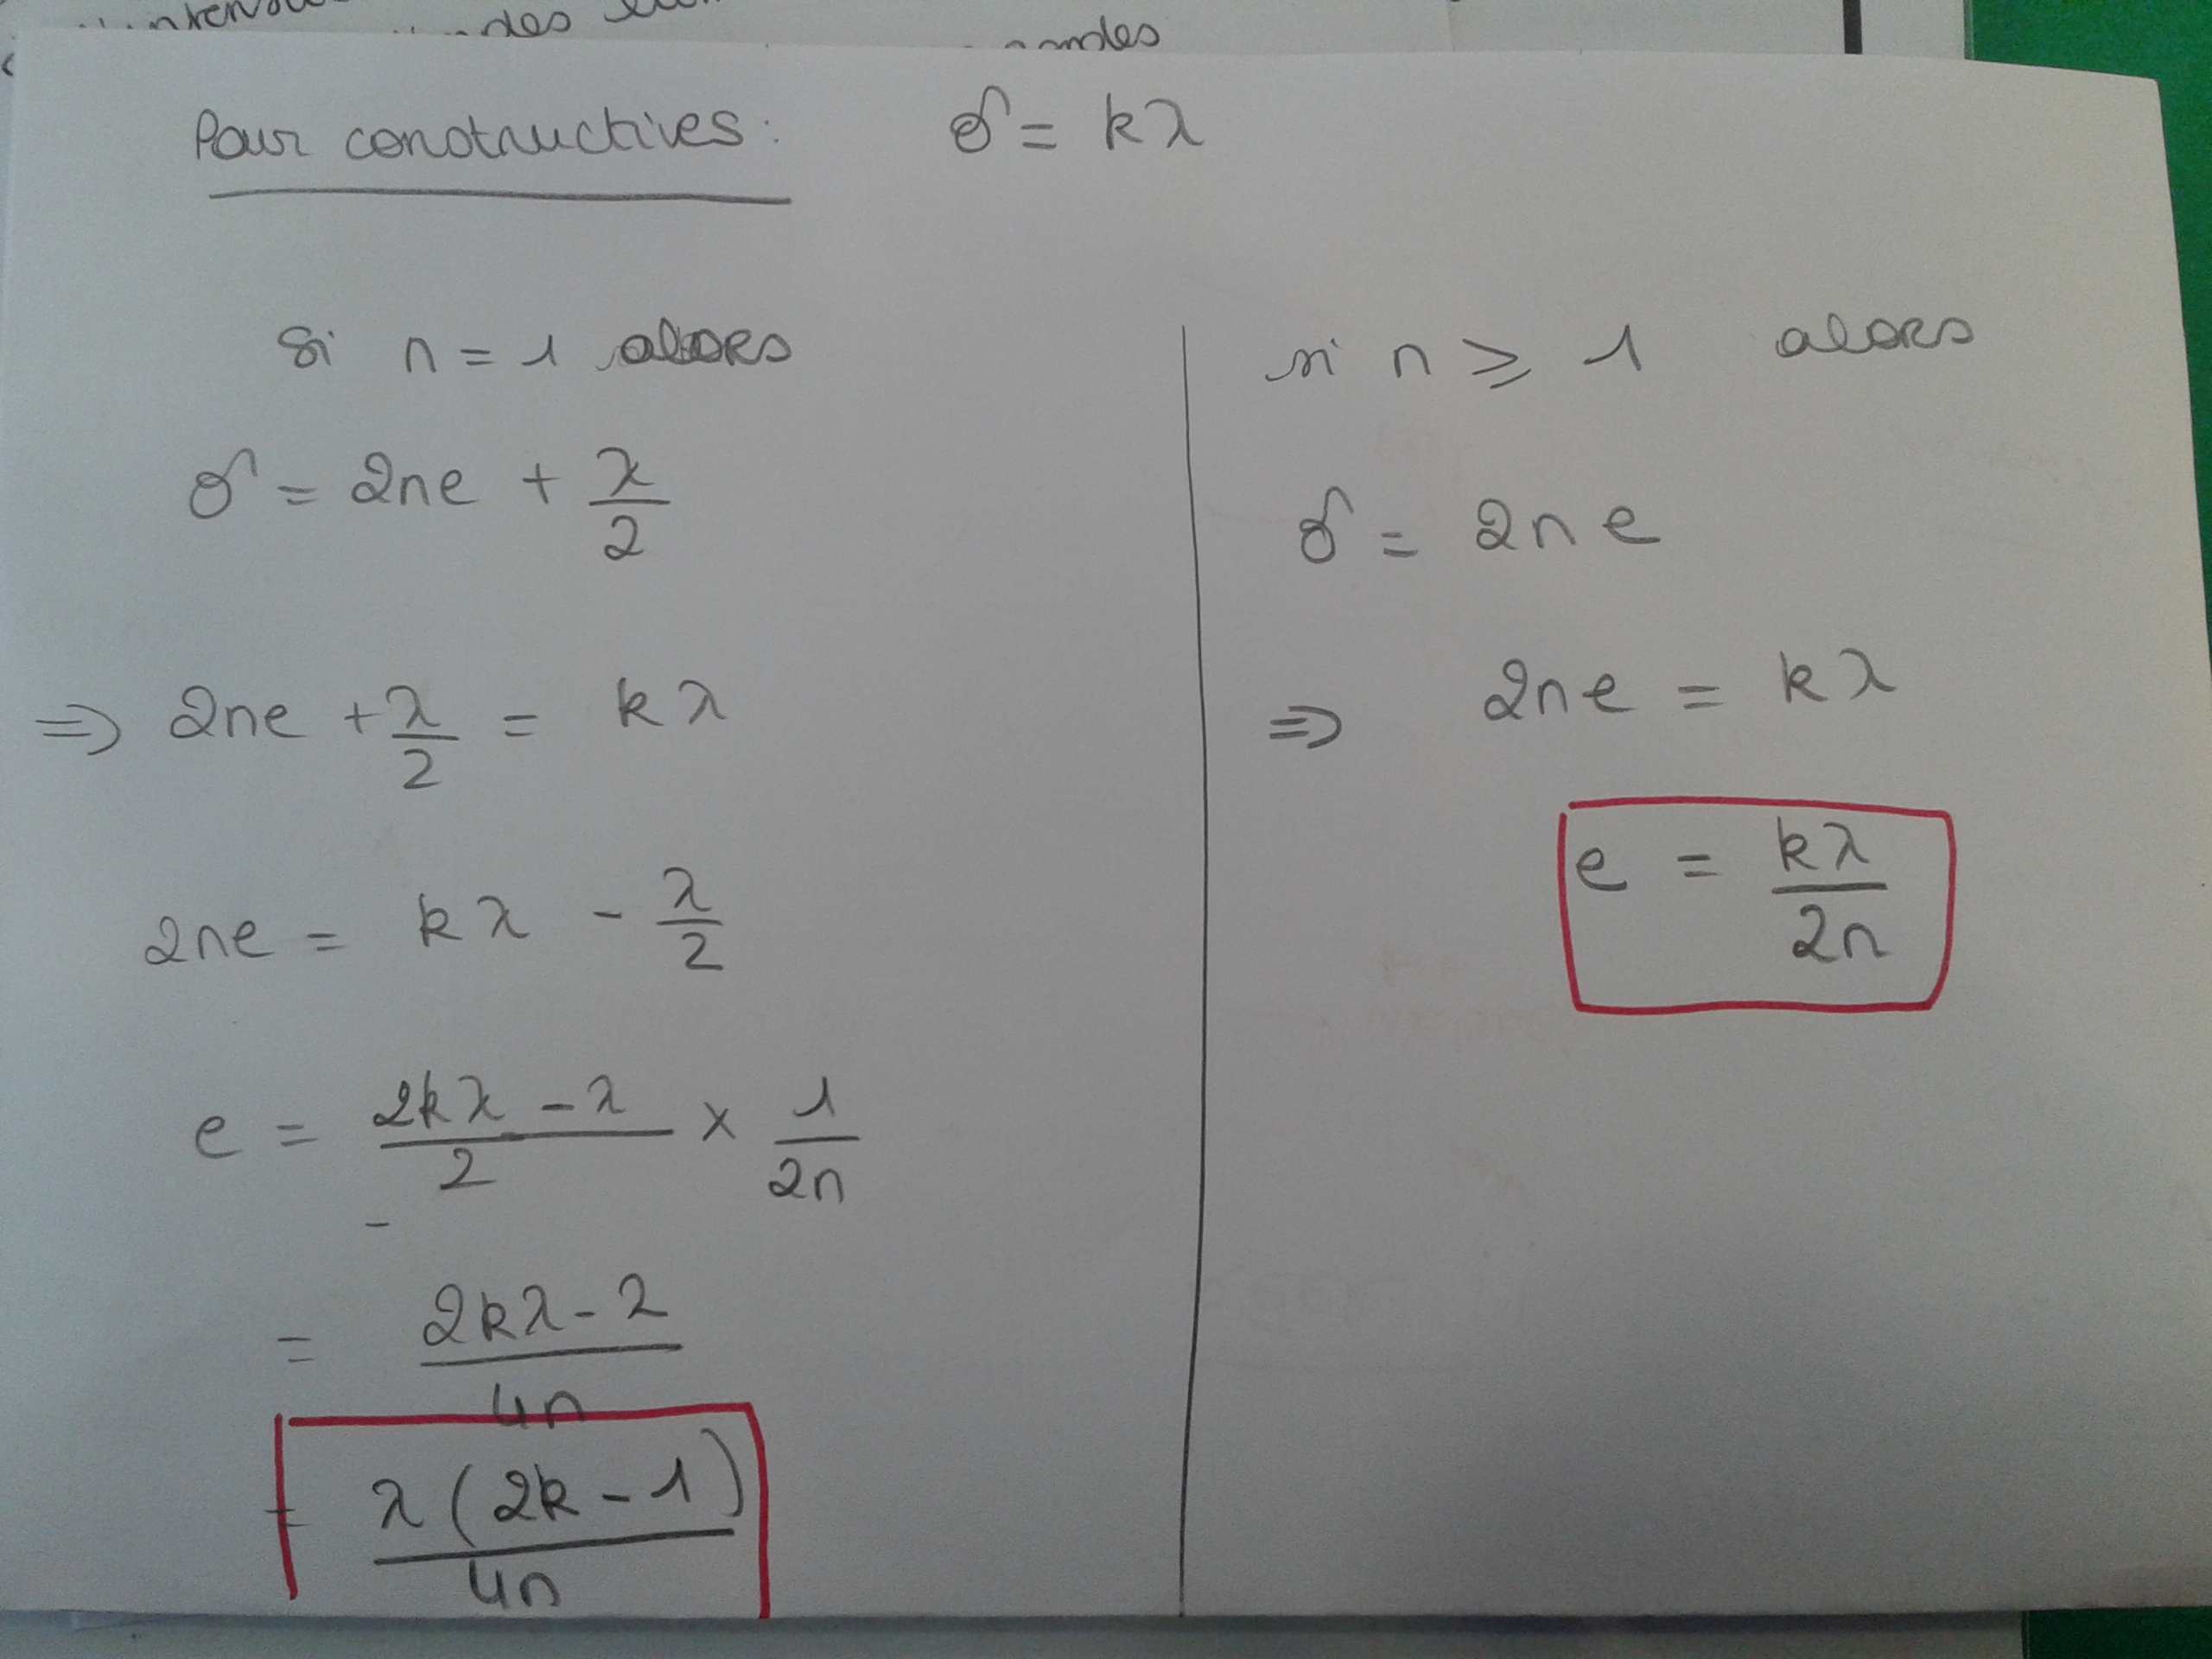 des
ondes
Pour constructives : δ = kλ
Si n = 1 alors
δ = 2ne + λ/2
=> 2ne + λ/2 = kλ
2ne = kλ - λ/2
e = (2kλ - λ)/2 × 1/2n
-
= (2kλ - λ)/4n
= λ(2k - 1)/4n
si n ⩾ 1 alors
δ = 2ne
=> 2ne = kλ
e = kλ/2n